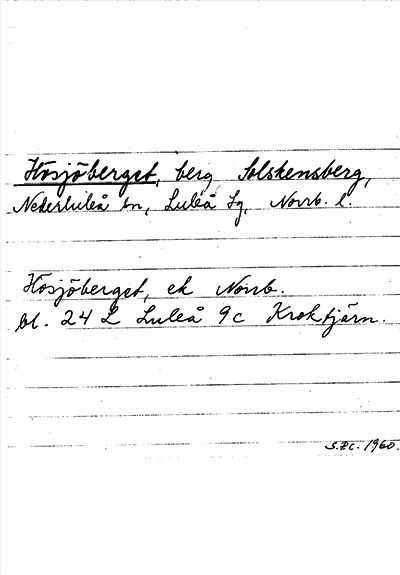 Hösjöberget, berg Solskensberg,
Nederluleå sn, Luleå tg, Norrb. l.
Hösjöberget, ek Norrb.
bl. 24 L Luleå 9c Kroktjärn.
1960.